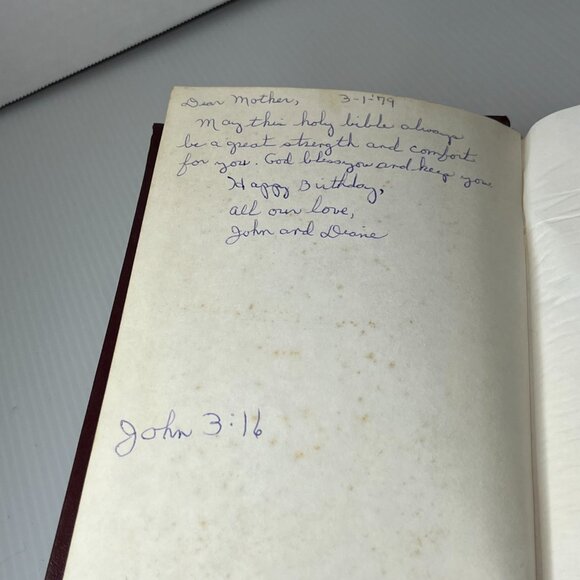 Dear Mother, 3-1-'79
May this holy bible always
be a great strength and comfort
for you. God bless you and keep you
Happy Birthday,
all our love,
John and Diane
John 3:16